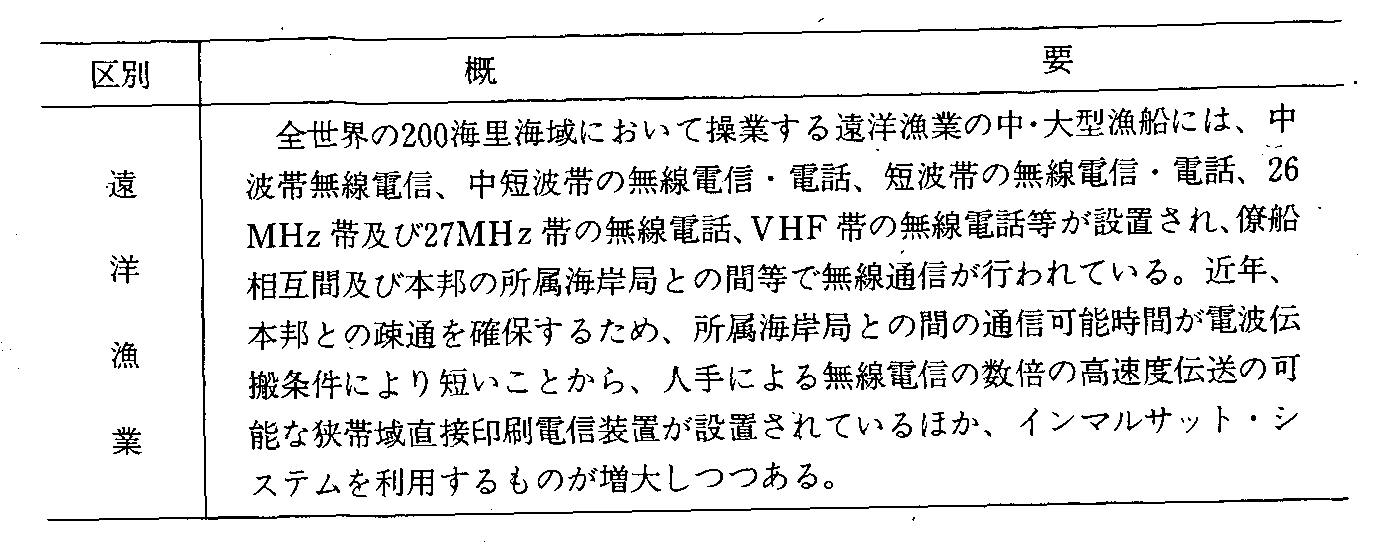 区別 概要
遠洋漁業
全世界の200海里海域において操業する遠洋漁業の中・大型漁船には、中
波帯無線電信、中短波帯の無線電信・電話、短波帯の無線電信・電話、26
MHz帯及び27MHz帯の無線電話、VHF帯の無線電話等が設置され、僚船
相互間及び本邦の所属海岸局との間等で無線通信が行われている。近年、
本邦との疎通を確保するため、所属海岸局との間の通信可能時間が電波伝
搬条件により短いことから、人手による無線電信の数倍の高速度伝送の可
能な狭帯域直接印刷電信装置が設置されているほか、インマルサット・シ
ステムを利用するものが増大しつつある。